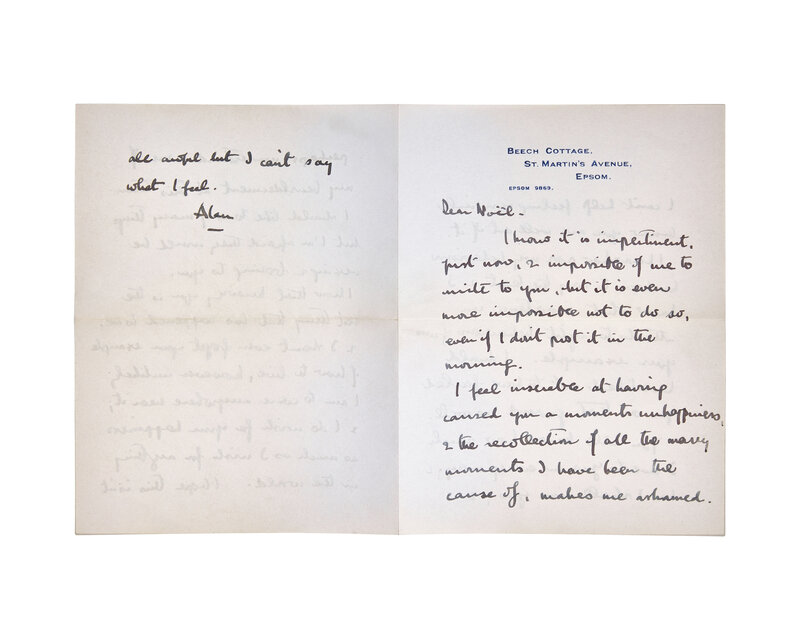 BEECH COTTAGE,
ST. MARTIN'S AVENUE,
EPSOM.
EPSOM 9869.
Dear Noël -
I know it is impertinent,
just now, & impossible of me to
write to you, but it is even
more impossible not to do so,
even if I don't post it in the
morning.
I feel miserable at having
caused you a moments unhappiness,
& the recollection of all the many
moments I have been the
cause of, makes me ashamed.
all awful but I can't say
what I feel.
Alan